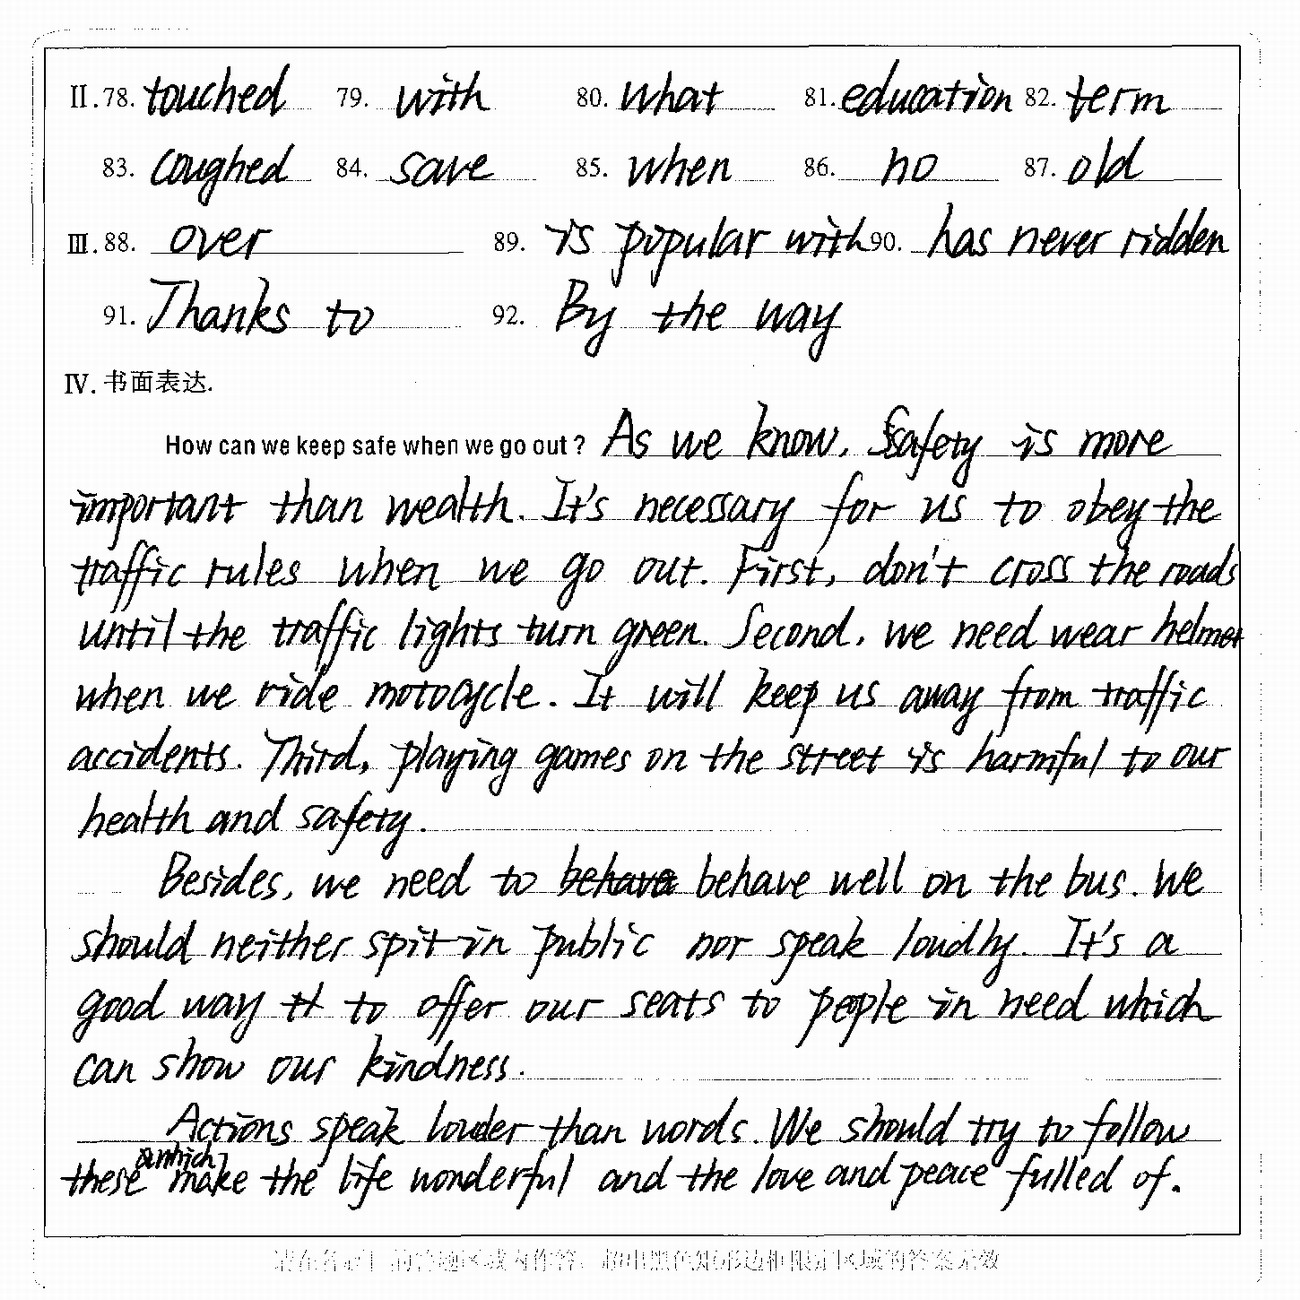 II.78. touched 79. with 80. what 81. education 82. term
83. coughed 84. save 85. when 86. no 87. old
III.88. over 89. is popular with 90. has never ridden
91. Thanks to 92. By the way
IV. 书面表达.
How can we keep safe when we go out? As we know, safety is more
important than wealth. It's necessary for us to obey the
traffic rules when we go out. First, don't cross the roads
until the traffic lights turn green. Second, we need wear helmet
when we ride motocycle. It will keep us away from traffic
accidents. Third, playing games on the street is harmful to our
health and safety.
Besides, we need to behave well on the bus. We
should neither spit in public nor speak loudly. It's a
good way to offer our seats to people in need which
can show our kindness.
Actions speak louder than words. We should try to follow
these which make the life wonderful and the love and peace fulled of.
请在各题目的答题区域内作答，超出黑色矩形边框限定区域的答案无效